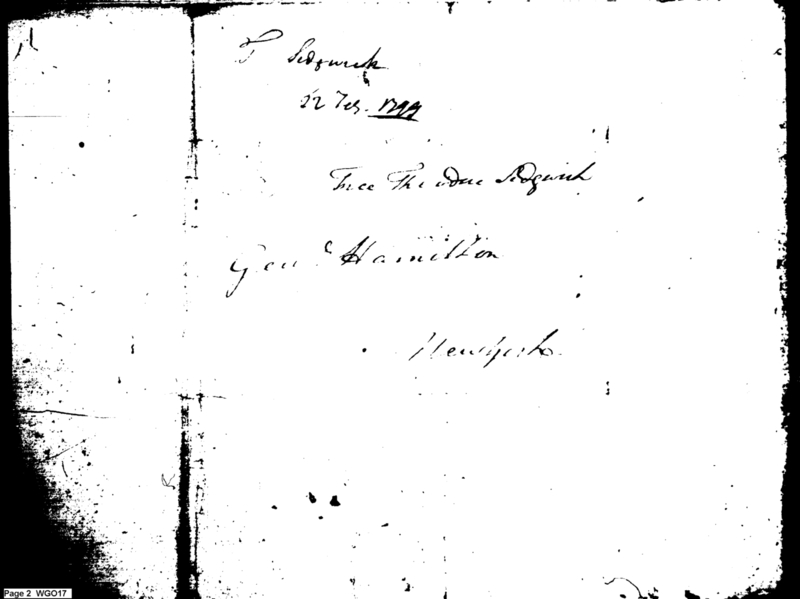 T Sedgwick
22 Feb. 1799
Free Theodore Sedgwick
Genl Hamilton
New York
Page 2 WGO17